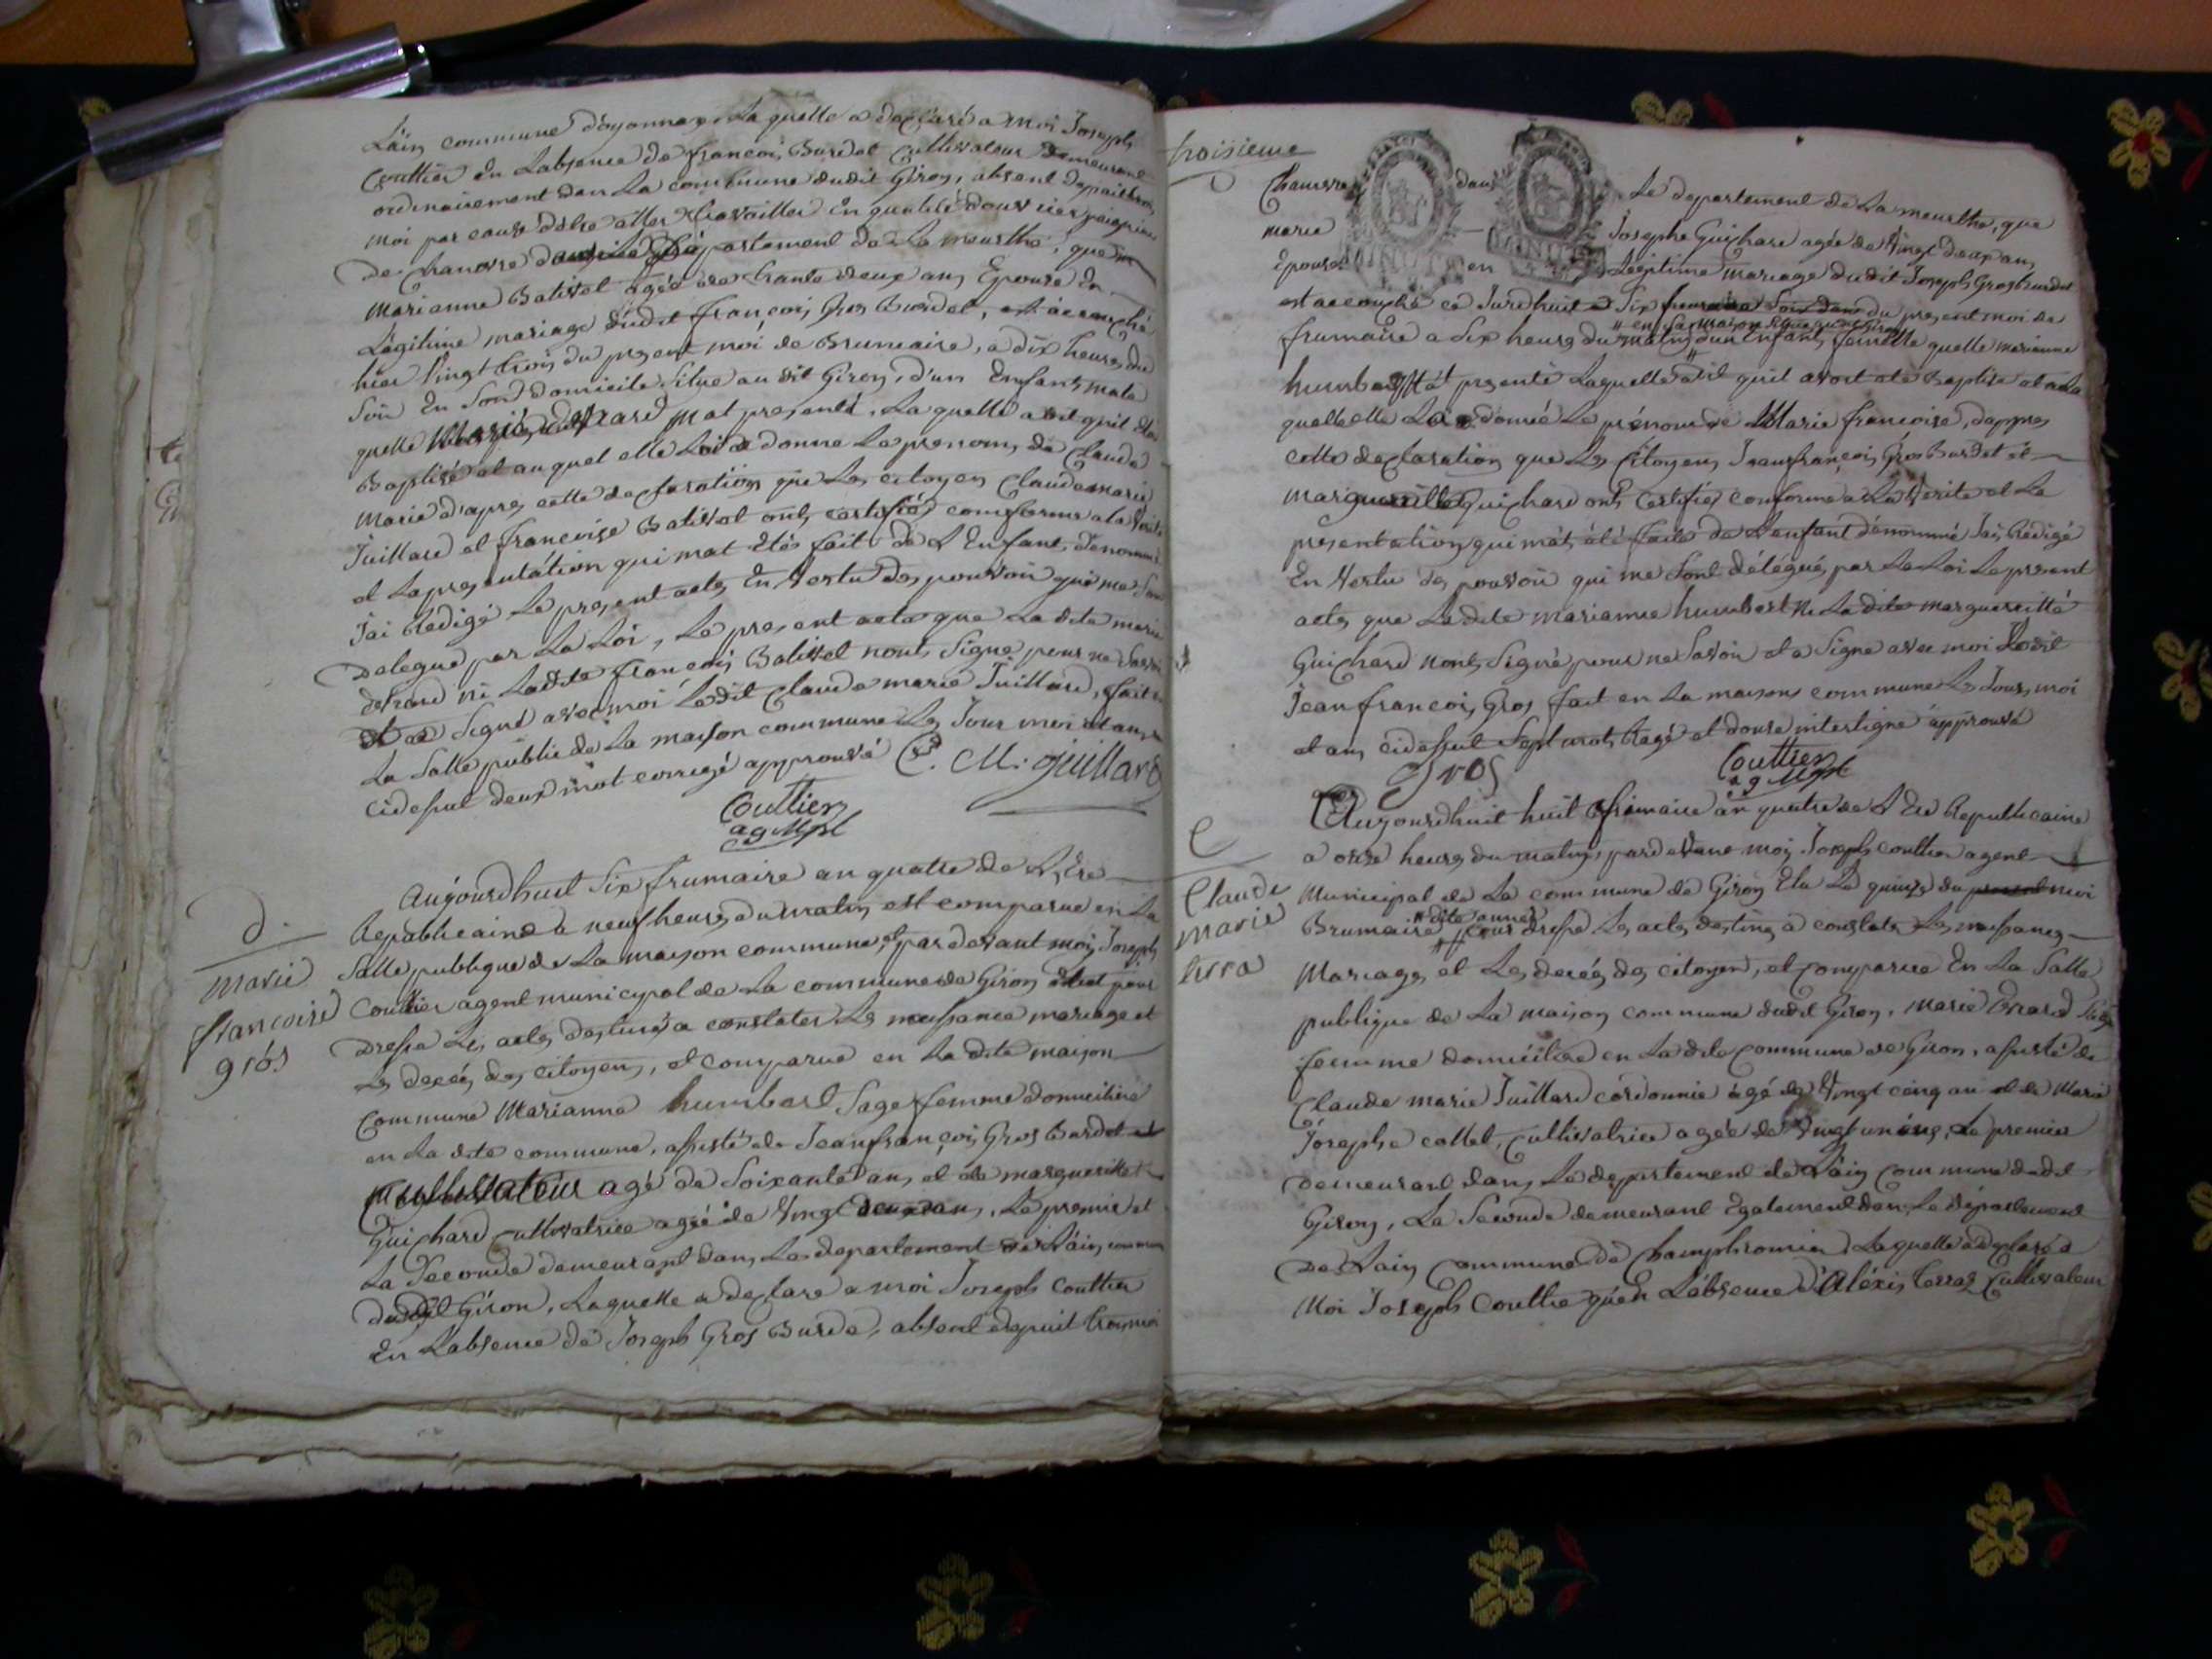 Lain commune d'oyonnax. La quelle a declaré a moi Joseph
Couttier En Labsence de françois Burdet Cultivateur demeurant
ordinairement dans La commune dudit Giron, absent depuit trois
moi par cause d'etre aller travailler En qualité d'ouvrier peigneur
De Chanvre dans Le Département de La meurthe, que
marianne Bativet agée de trante deux ans Epouse En
Légitime mariage dudit françois Gros Burdet, est accouché
hier vingt trois du present moi de Brumaire, a dix heures du
Soir En Son domicile Situe au dit Giron, d'un Enfant male
quelle Marie mat presenté, La quelle a dit quil etoit
Baptisé et au quel elle Lui a donné Le prenom de Claude
Marie d'apres cette declaration que Les citoyen Claude marie
Juillard et françoise Bativet ont certifié conforme a la verité
et La presentation qui mat etés faite de L'Enfant denommé
J'ai Rédigé Le present acte En Vertu des pouvoir qui me Son
Delegué par La Loi, Le present acte que La dite marie
ni Ladite françois Bativet nont Signé pour ne Savoir
et a Signé avec moi Ledit Claude marie Juillard, fait en
La Salle public de La maison commune Les Jour moi et an
cidesut deux mot corrigé approuvé C. M. Juillard
Couttier
ag Mpl
D.
marie
francoise
gros
Aujourdhuit Six frumaire an quatre de L'Ere
Republicaine a neuf heures du matin est comparue en La
Salle publique de La maison commune, et par devant moi, Joseph
Couttier agent municipal de La commune de Giron elut pour
Dresse Les actes destinés a constater Les naissance mariage et
Les decés des citoyens, et comparue en La dite maison
Commune Marianne humbert Sage femme domiciliée
en La dite commune, assisté de Jean françois Gros Burdet
Cultivateur agé de Soixante ans et de margueritte
Guichard Cultivatrice agée de Vingt deux ans, Le premie et
La Seconde demeurant dans Le departement de Lain, commune
dudit Giron, Laquelle a declare a moi Joseph Couttier
En Labsence de Joseph Gros Burde, absent depuit trois moi
troisieme
Chanvre dans Le departement de La meurthe, que
marie — Josephe Guichard agée de Vingt deux ans
épouse en Legitime mariage dudit Joseph Gros burdet
est accouché ce Jurdhuit Six du present moi de
frumaire a Six heures du matin d'un Enfant femelle quelle marianne
humbert mat presenté Laquelle a dit quil avoit ete Baptise et a La
quelle elle Lui a donné Le prénom de Marie francoise, dappres
cette declaration que Les Citoyens Jean françois Gros Burdet et
marguerille Guichard ont Certifiés conforme a La Verite et La
presentation qui mat été faite de L'enfant dénommé Jai Rédigé
En Vertu des pouvoir qui me Sont délégué, par La Loi Le present
acte que Ladite marianne humbert Ni La dite marguerittè
Guichard nont Signé pour ne Savoir et a Signe avec moi Ledit
Jean francois Gros fait en La maison commune Les Jour, moi
et an, cidessut Sept mot Raÿé et douse interligne approuvé
Gros Couttier
ag Mpl
E
Claude
marie
terra
Aujourdhuit huit frimaire an quatre de L'Ere Republicaine
a onze heures du matin, pardevant moi, Joseph couttier agent
Municipal de La commune de Giron Elu Le quinze du present moi
Brumaire dite année pour dresse Les actes destinés a constater Les naissances
Mariage, et Les decés des citoyen, et comparue En La Salle
publique de La maison commune dudit Giron, Marie Sage
femme domiciliée en La dite commune de Giron, assisté de
Claude marie Juillard cordonnie àgé de Vingt cinq an et de Marie
Josephe collet, Cultivatrice agée de Vingt, Le premier
Demeurant dans Le departement de L'ain commune dudit
Giron, La Seconde demeurant Egalement dans Le departement
De L'ain Commune de Champfromier, Laquelle a declaré a
Moi Joseph Couttie quen L'absence d'Aléxis terraz Cultivateur